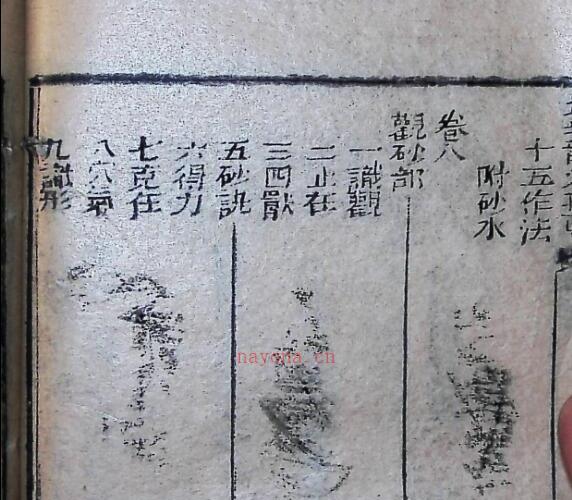 十五作法
附砂水
卷八
觀砂部
一識觀
二止在
三四獸
五砂訊
六得力
七克在
八穴氣
九識形
nayona.cn